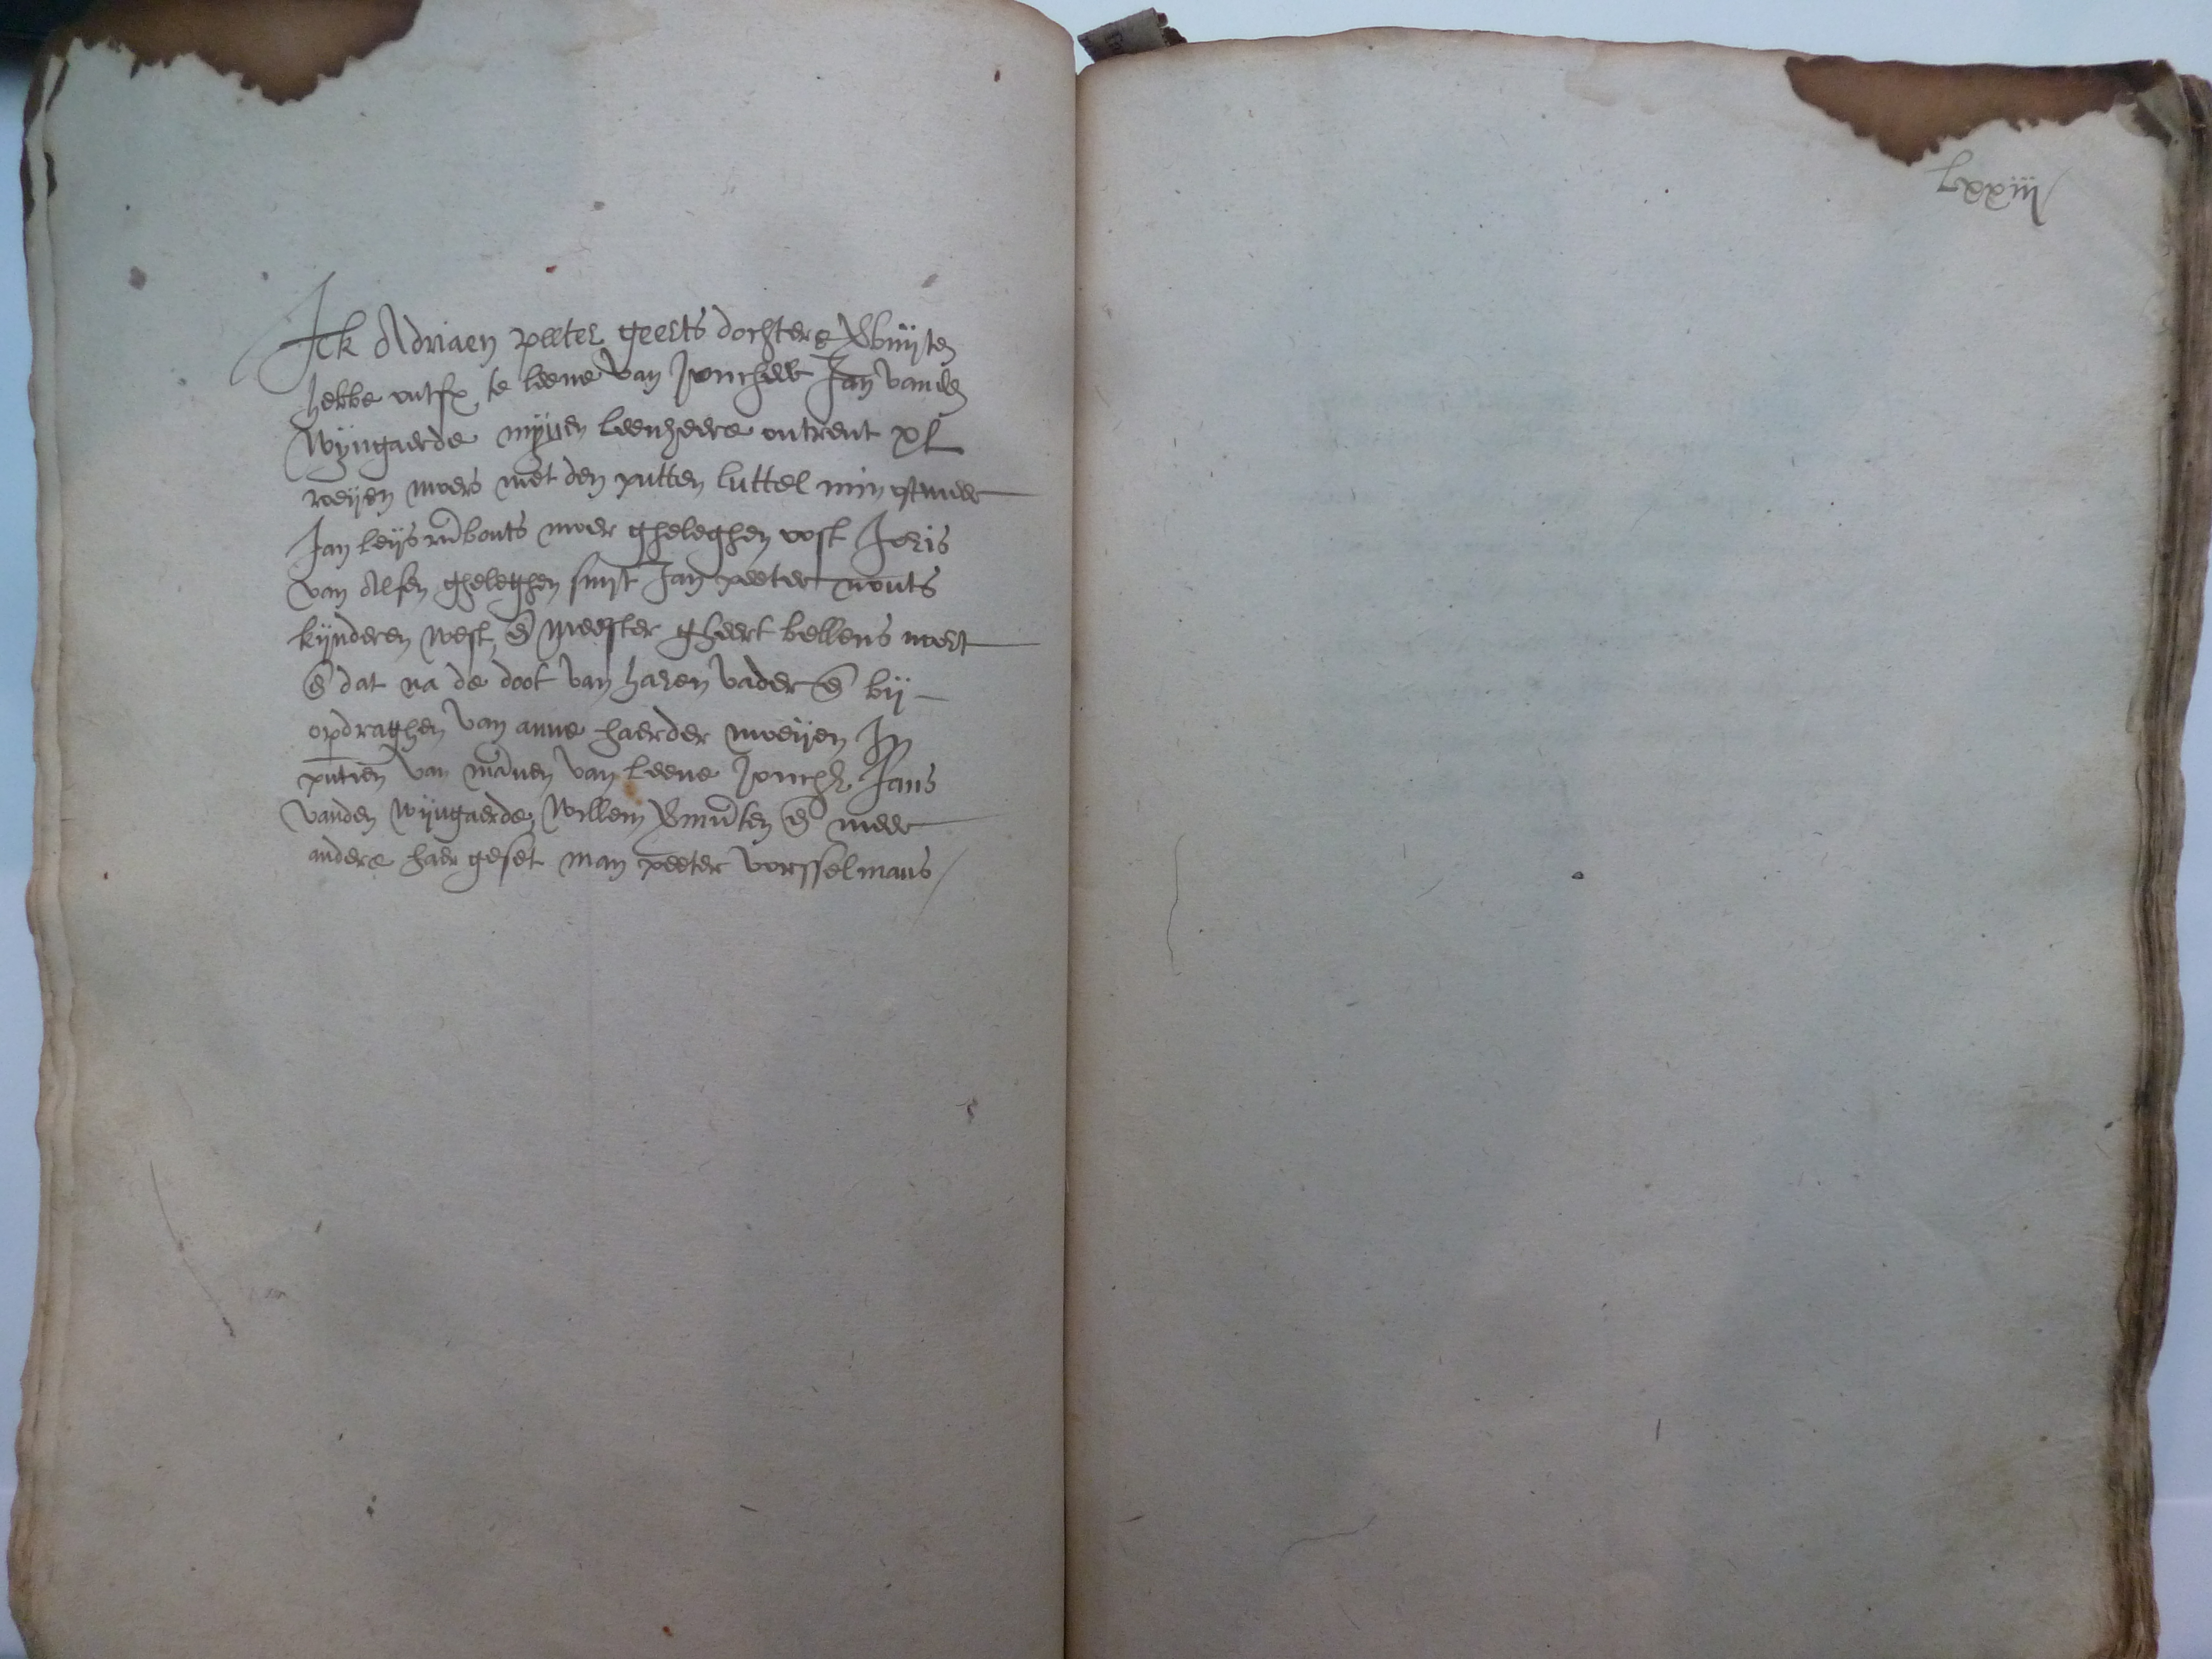 Ick Adriaen peeter geerts dochtere
hebbe ontf te leene van Joncheer Jan vanden
Wijngaerde mijnen leenheere ontrent xl
roeijen moers met den putten luttel min
Jan leijs moer gheleghen oost Joris
van Alfen gheleghen suyt Jan peeter nouts
kijnderen west, en meester gheert bellens noert
en dat na de doot van haren vader en bij
opdraghen van anne haerder moeijen In
pntien van mannen van leene Jonch Jans
vanden Wijngaerde, Willem en meer
andere haer geset man peeter vorsselmans
Lxxiij